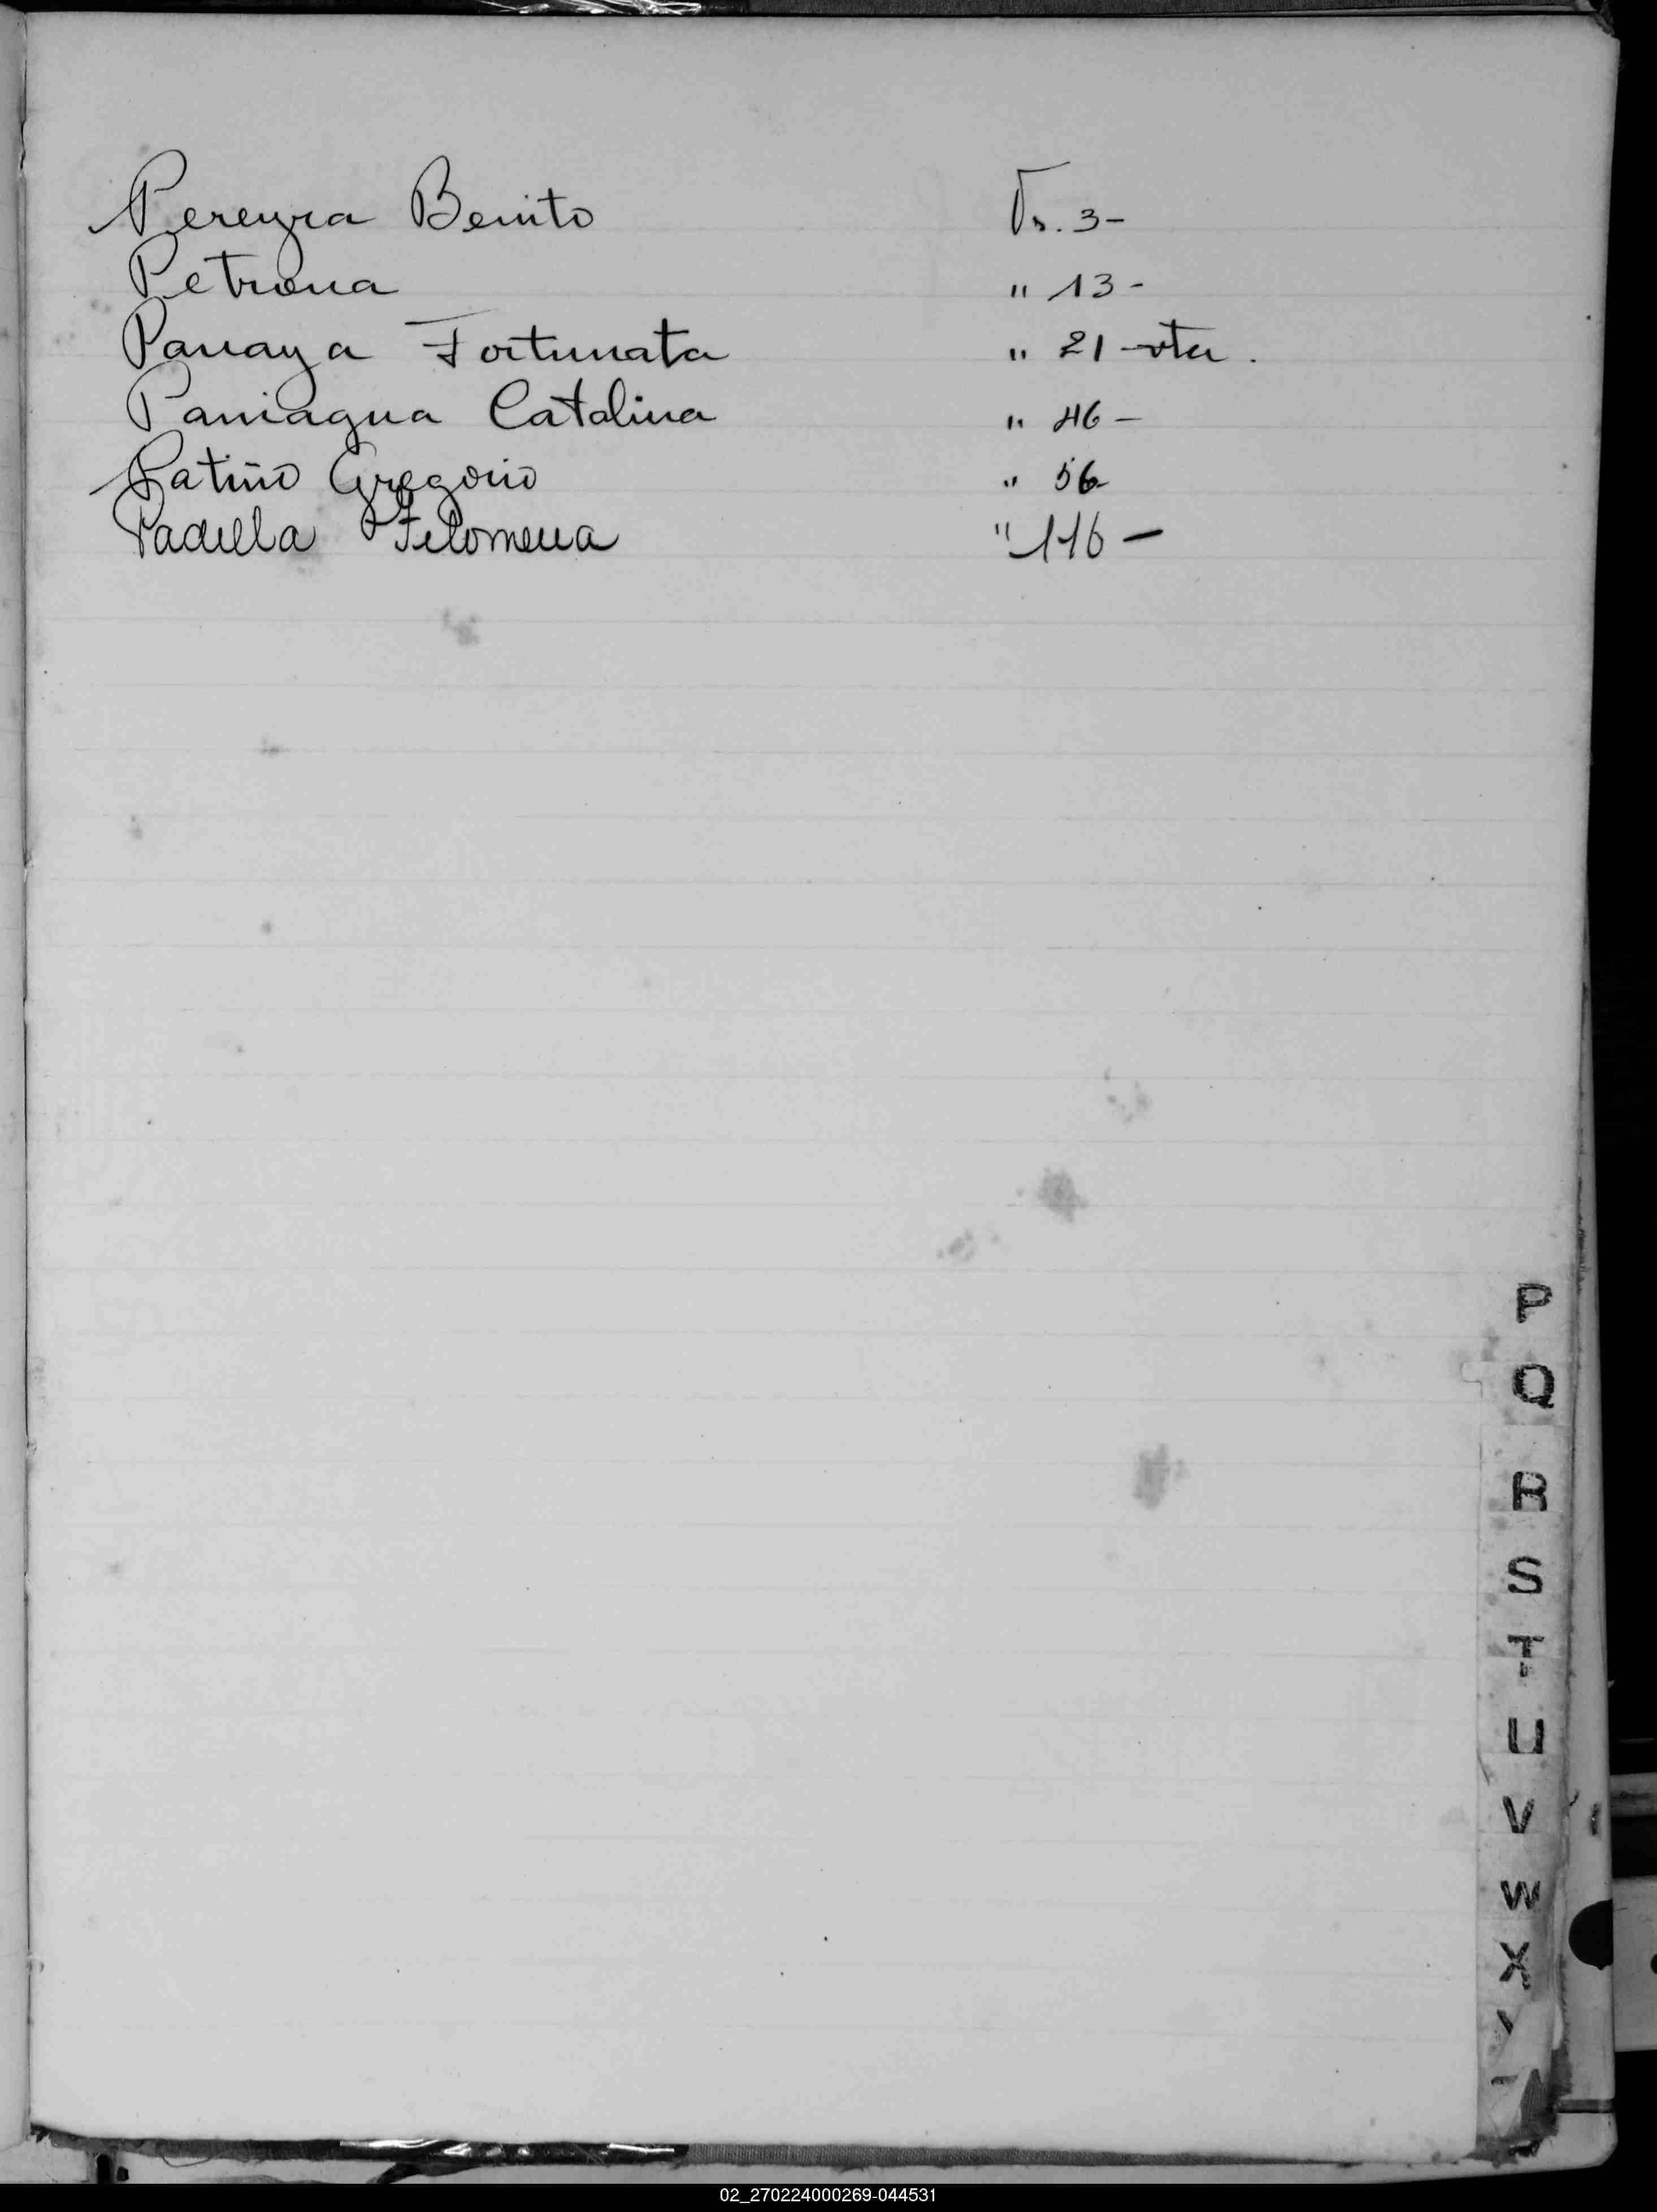 Pereyra Benito Fs. 3-
Petrona " 13-
Panaya Fortunata " 21-vta.
Paniagua Catalina " 46-
Patiño Gregorio " 56-
Padilla Filomena " 116-
P
Q
R
S
T
U
V
W
X
02_270224000269-044531